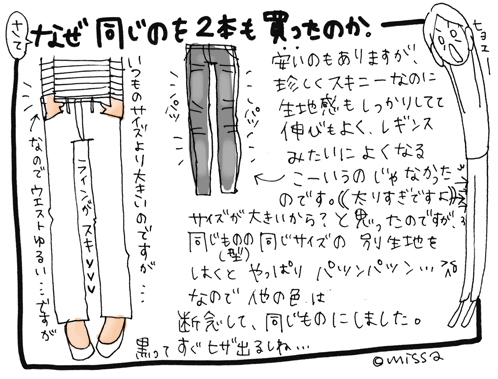 さて
なぜ 同じのを 2本も 買ったのか。
ヒョエー
いつものサイズより大きいのですが…
なのでウエストゆるい…ですが
ラインがスキ♥♥♥
パツ
パツ
安いのもありますが、
珍しくスキニーなのに
生地感もしっかりしてて
伸びもよく、レギンス
みたいによくなる
こーいうのじゃなかった
のです。(太りすぎですよ)
サイズが大きいから?と思ったのですが、
同じものの同じサイズの別生地を
(型)
はくと やっぱり パツンパツン…
なので 他の色は
断念して、同じものにしました。
黒ってすぐヒザ出るしね…
©missa